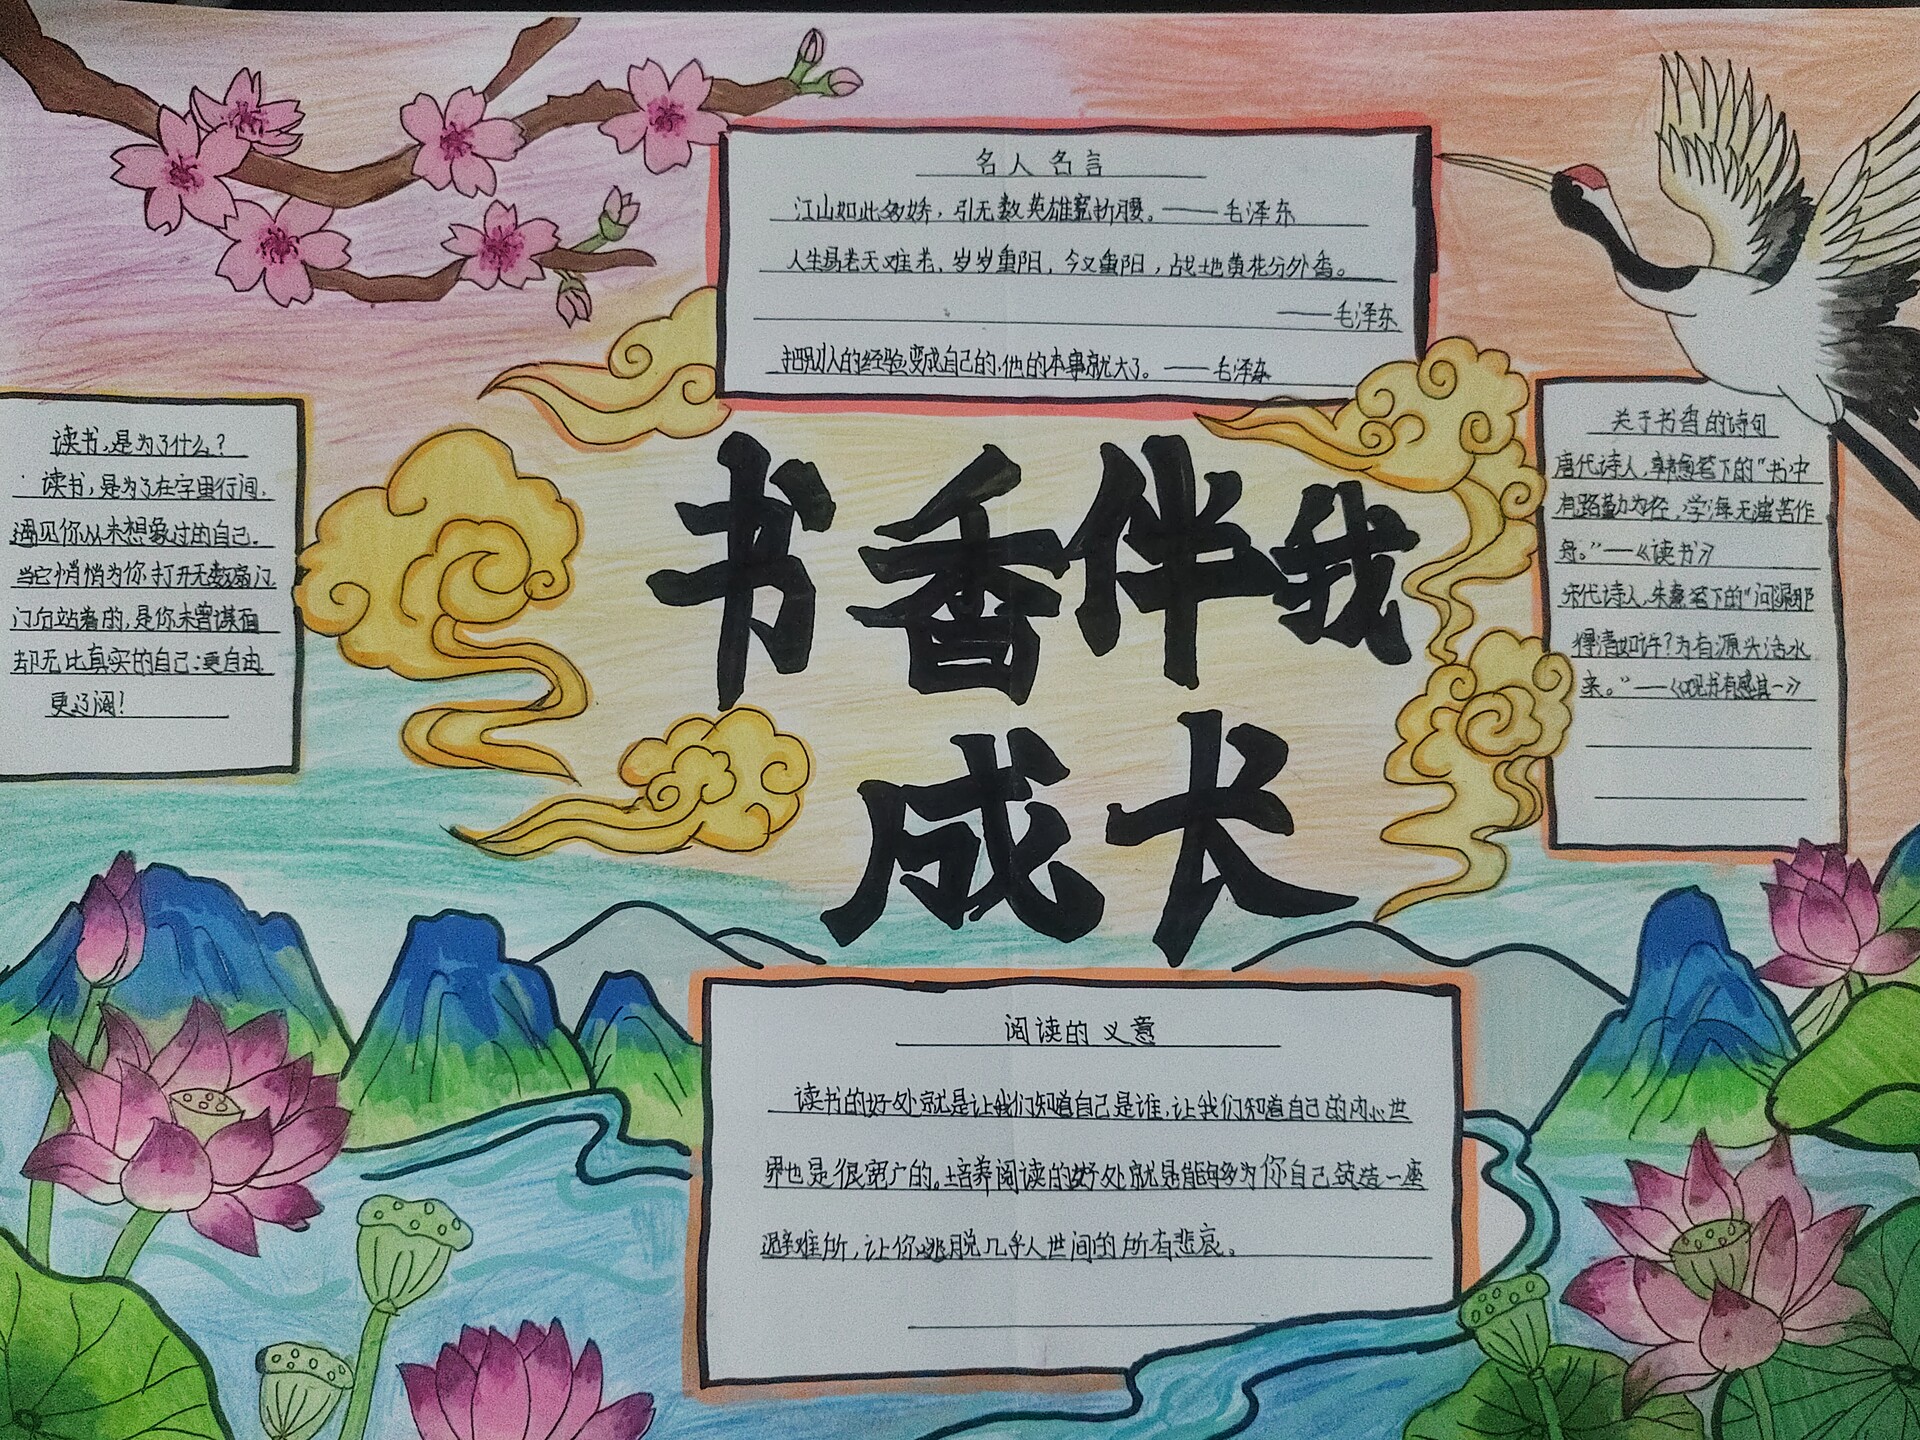 名人名言
江山如此多娇，引无数英雄竞折腰。——毛泽东
人生易老天难老，岁岁重阳，今又重阳，战地黄花分外香。
——毛泽东
把别人的经验变成自己的，他的本事就大了。——毛泽东
读书，是为了什么？
读书，是为了在字里行间，
遇见你从未想象过的自己。
当它悄悄为你打开无数扇门，
门后站着的，是你未曾谋面
却无比真实的自己：更自由，
更辽阔！
书香伴我
成长
关于书香的诗句
唐代诗人，韩愈笔下的“书中
有路勤为径，学海无崖苦作
舟。”—《读书》
宋代诗人，朱熹笔下的“问渠那
得清如许？为有源头活水
来。”—《观书有感其一》
阅读的义意
读书的好处就是让我们知道自己是谁，让我们知道自己的内心世
界也是很宽广的。培养阅读的好处就是能够为你自己筑造一座
避难所，让你逃脱几乎人世间的所有悲哀。